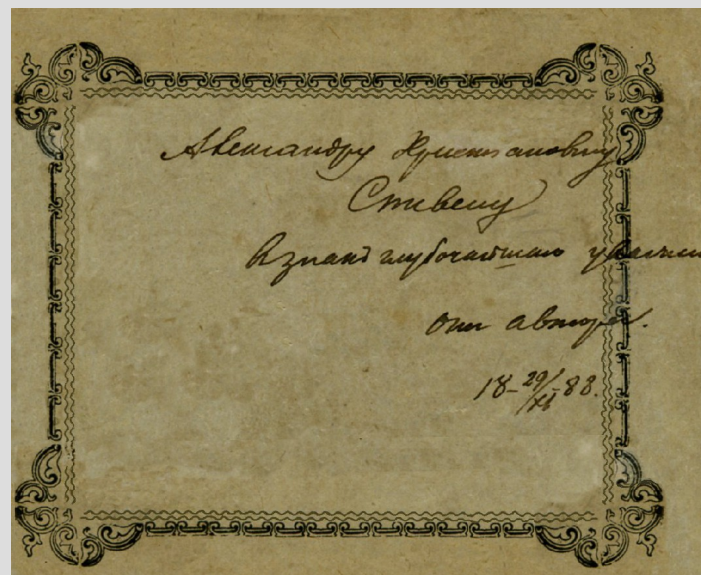 Александру Христиановичу
Стевену
В знакъ глубочайшаго уваженія
отъ автора.
18 29/XI 88.